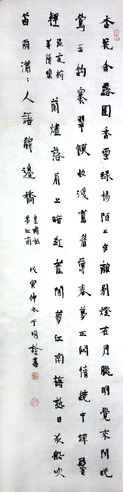 杏花含露團香雪綠楊陌上多離別燈在月朧明覺來聞曉
鶯玉鈎褰翠幕妝淺舊眉薄春夢正關情鏡中蟬鬢
輕
溫庭筠
菩薩蠻
蘭燼落屏上暗紅蕉閒夢江南梅熟日夜船吹
笛雨瀟〻人語驛邊橋
皇甫松
夢江南
戊寅仲冬丁明書